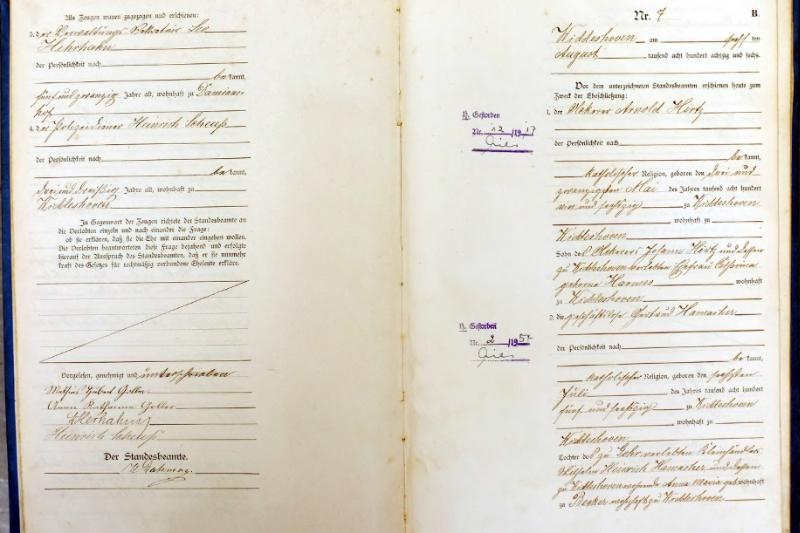 Als Zeugen waren zugezogen und erschienen:
3. der Verwaltungs-Sekretair Leo
Hehrhahn
der Persönlichkeit nach
be kannt,
fünf und zwanzig Jahre alt, wohnhaft zu Damians-
hof
4. der Polizeidiener Heinrich Scheuß
der Persönlichkeit nach
be kannt,
drei und dreißig Jahre alt, wohnhaft zu
Widdeshoven
In Gegenwart der Zeugen richtete der Standesbeamte an
die Verlobten einzeln und nach einander die Frage:
ob sie erklären, daß sie die Ehe mit einander eingehen wollen.
Die Verlobten beantworteten diese Frage bejahend und erfolgte
hierauf der Ausspruch des Standesbeamten, daß er sie nunmehr
kraft des Gesetzes für rechtmäßig verbundene Eheleute erkläre.
Vorgelesen, genehmigt und unterschrieben
Mathias Hubert
Anna Katharina
Heinrich Scheuß
Der Standesbeamte.
Nr. 7
B.
Widdeshoven am ten
August tausend acht hundert achtzig und sechs.
Vor dem unterzeichneten Standesbeamten erschienen heute zum
Zweck der Eheschließung:
1. der Ackerer Arnold Hirtz
der Persönlichkeit nach
be kannt,
katholischer Religion, geboren den drei und
zwanzigsten Mai des Jahres tausend acht hundert
vier und sechszig zu Widdeshoven
wohnhaft zu
Widdeshoven
Sohn des Ackerers Johann Hirtz und dessen
zu Widdeshoven verlebten Ehefrau Catharina
geborene Harnes wohnhaft
zu Widdeshoven
2. die geschäftslose Gertrud Hamacher
der Persönlichkeit nach
be kannt,
katholischer Religion, geboren den sechsten
Juli des Jahres tausend acht hundert
fünf und sechszig zu Widdeshoven
wohnhaft zu
Widdeshoven
Tochter des zu verlebten
Wilhelm Heinrich Hamacher und dessen
zu Widdeshoven wohnende Anna Maria geb wohnhaft
zu Becker wohnhaft zu Widdeshoven
H. Gestorben
Nr. 12 /19 17
H. Gestorben
Nr. 2 /19